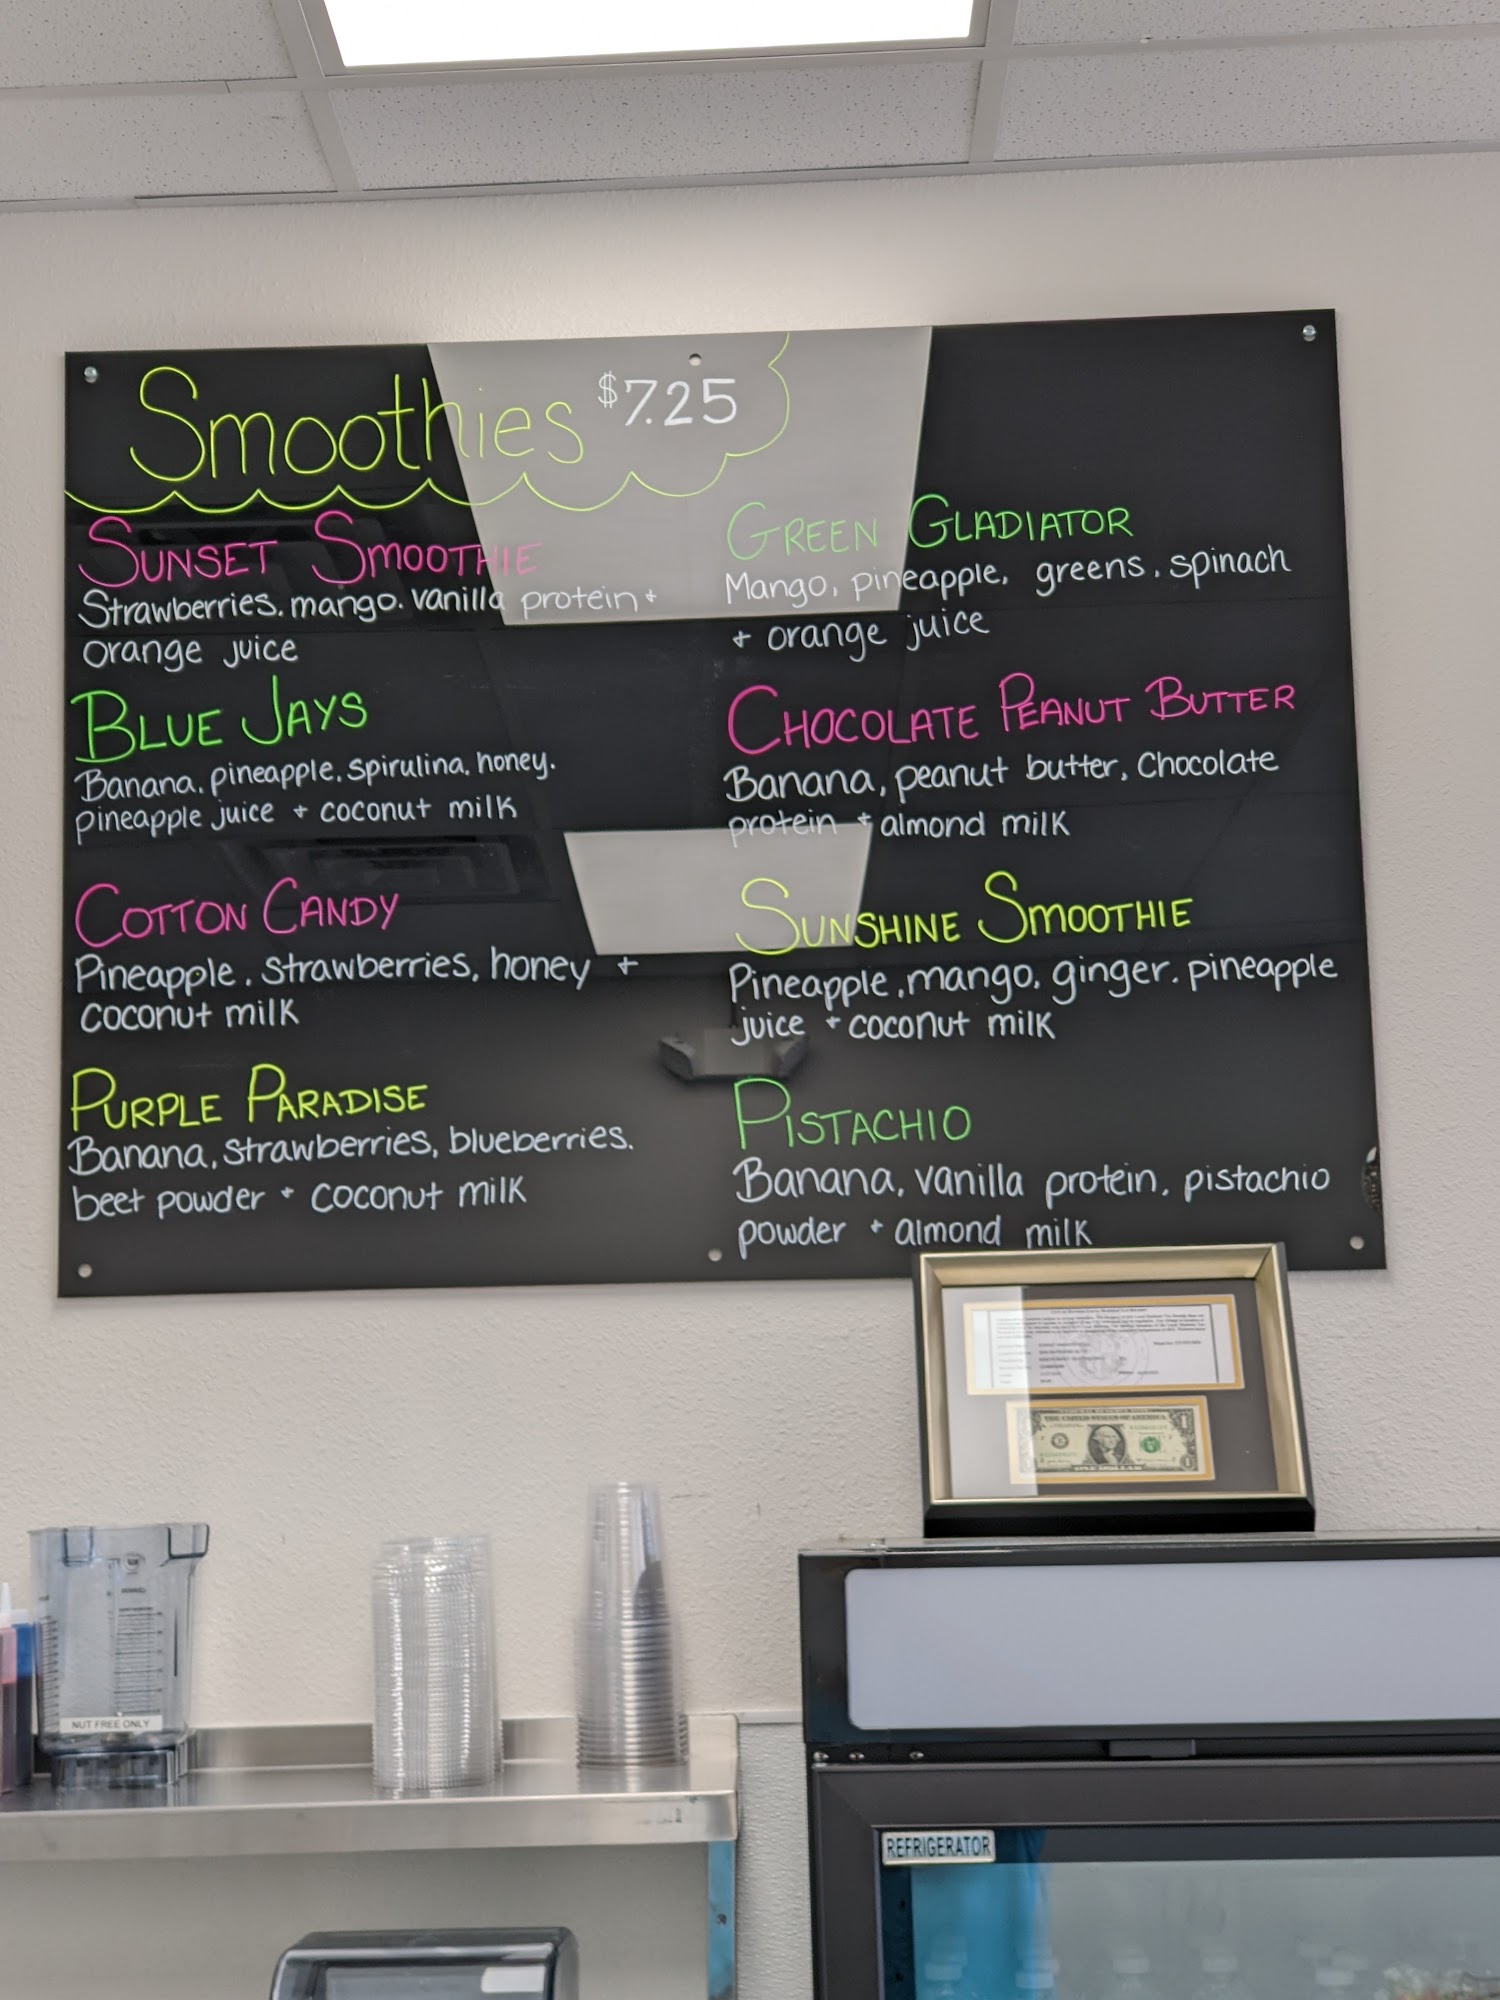 Smoothies $7.25
SUNSET SMOOTHIE
Strawberries, mango, vanilla protein +
orange juice
BLUE JAYS
Banana, pineapple, spirulina, honey,
pineapple juice + coconut milk
COTTON CANDY
Pineapple, strawberries, honey +
coconut milk
PURPLE PARADISE
Banana, strawberries, blueberries,
beet powder + coconut milk
GREEN GLADIATOR
Mango, pineapple, greens, spinach
+ orange juice
CHOCOLATE PEANUT BUTTER
Banana, peanut butter, Chocolate
protein + almond milk
SUNSHINE SMOOTHIE
Pineapple, mango, ginger, pineapple
juice + coconut milk
PISTACHIO
Banana, vanilla protein, pistachio
powder + almond milk
THE UNITED STATES OF AMERICA
ONE DOLLAR
NUT FREE ONLY
REFRIGERATOR